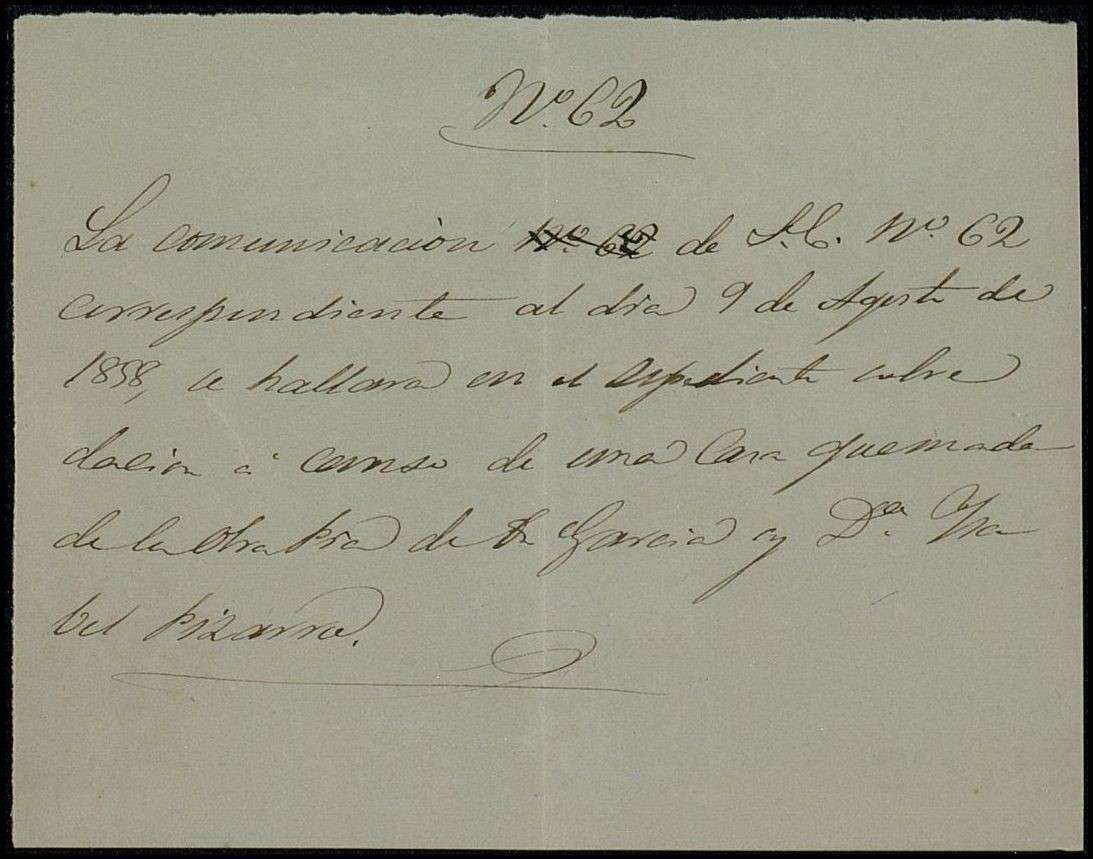 Nº. 62
La comunicaciòn Nº. 62 de S.E. Nº. 62
correspondiente al dia 9 de Agosto de
1858, se hallara en el espediente sobre
dacion á censo de una Casa quemada
de la Obra Pia de Garcia y Dª. Ysa
bel Pizarro.